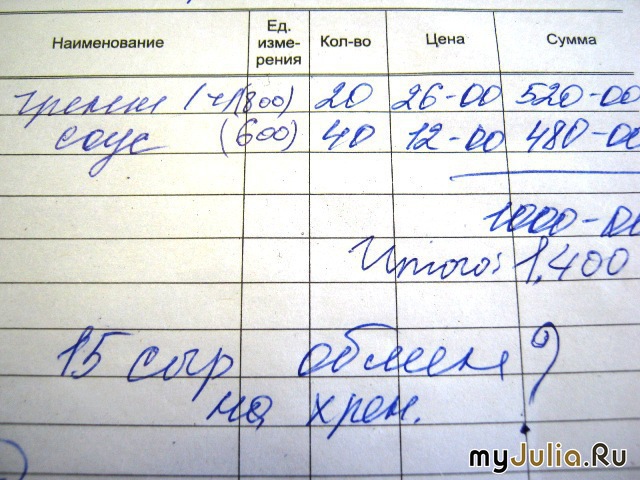 Наименование Ед. изме- рения Кол-во Цена Сумма
гренки (ч/(800) 20 26-00 520-00
соус (600) 40 12-00 480-00
1000-00
Итого: 1,400
15 сыр обмен ?
на хрен.
myJulia.Ru